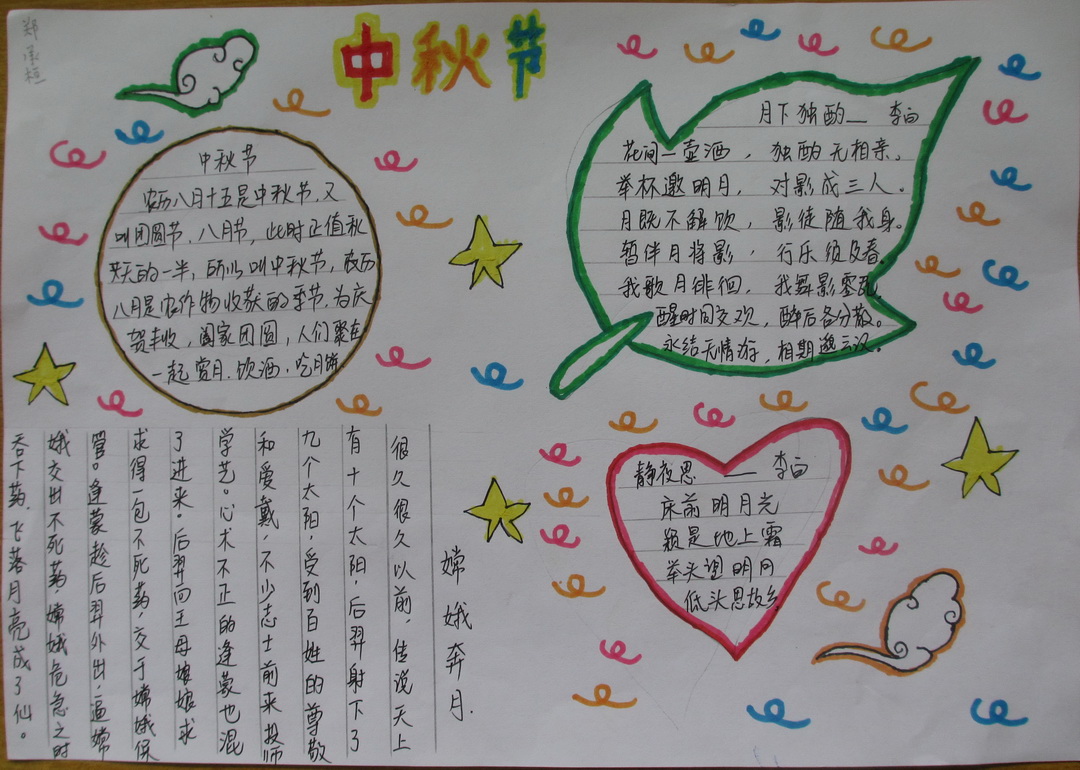 郑承桓
中秋节
中秋节
农历八月十五是中秋节，又
叫团圆节、八月节，此时正值秋
天的一半，所以叫中秋节，农历
八月是农作物收获的季节，为庆
贺丰收，阖家团圆，人们聚在
一起赏月、饮酒、吃月饼。
月下独酌__ 李白
花间一壶酒，独酌无相亲。
举杯邀明月，对影成三人。
月既不解饮，影徒随我身。
暂伴月将影，行乐须及春。
我歌月徘徊，我舞影零乱
醒时同交欢，醉后各分散。
永结无情游，相期邈云汉。
嫦娥奔月.
很久很久以前，传说天上
有十个太阳，后羿射下了
九个太阳，受到百姓的尊敬
和爱戴，不少志士前来投师
学艺。心术不正的逢蒙也混
了进来。后羿向王母娘娘求
求得一包不死药，交于嫦娥保
管。逢蒙趁后羿外出，逼嫦
娥交出不死药，嫦娥危急之时
吞下药，飞落月亮成了仙。
静夜思 —— 李白
床前明月光
疑是地上霜
举头望明月
低头思故乡